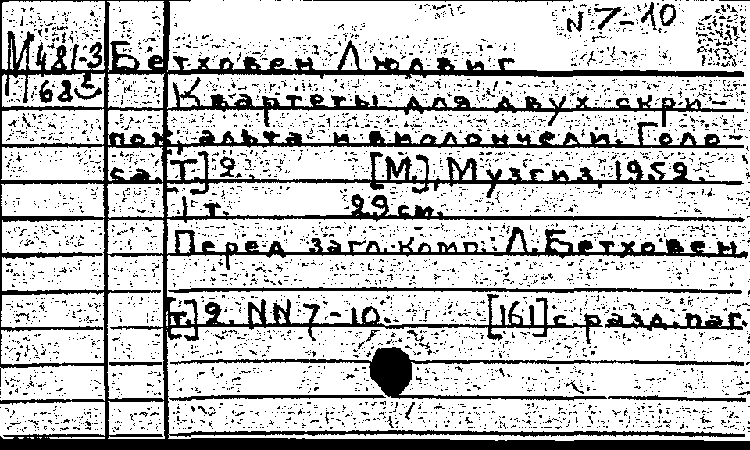 N 7-10
М 481-3 Бетховен, Людвиг
М 68 Квартеты для двух скри-
пок, альта и виолончели. Голо-
са. [Т.] 2. [М.], Музгиз, 1952.
1 т. 29 см.
Перед загл. комп.: Л. Бетховен.
[Т.] 2. NN 7-10. [161] с разд. паг.